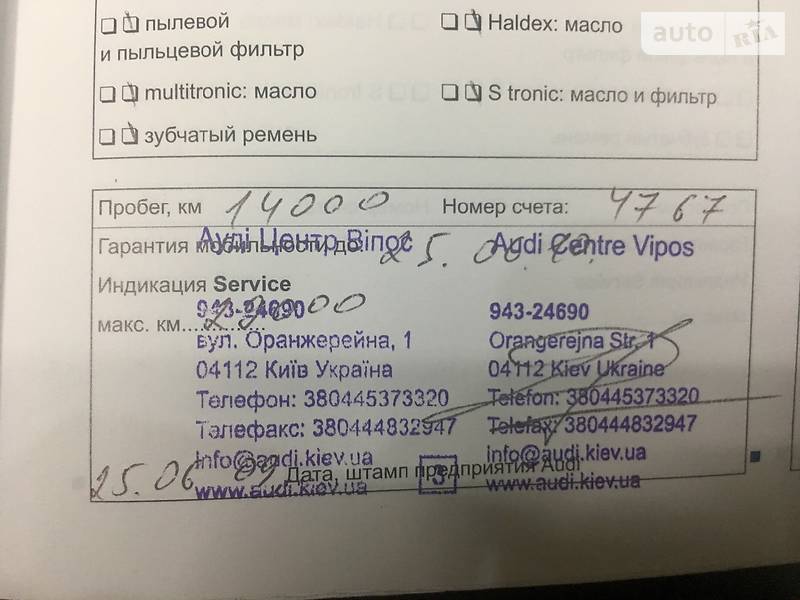 пылевой
и пыльцевой фильтр
Haldex: масло
multitronic: масло
S tronic: масло и фильтр
зубчатый ремень
auto RIA
Пробег, км 14000 Номер счета: 4767
Гарантия мобильности до: 25.
Ауді Центр Віпос Audi Centre Vipos
Индикация Service
943-24690 943-24690
макс. км
вул. Оранжерейна, 1 Orangerejna Str, 1
04112 Київ Україна 04112 Kiev Ukraine
Телефон: 380445373320 Telefon: 380445373320
Телефакс: 380444832947 Telefax: 380444832947
info@audi.kiev.ua info@audi.kiev.ua
25.06.09 Дата, штамп предприятия Audi
www.audi.kiev.ua 3 www.audi.kiev.ua